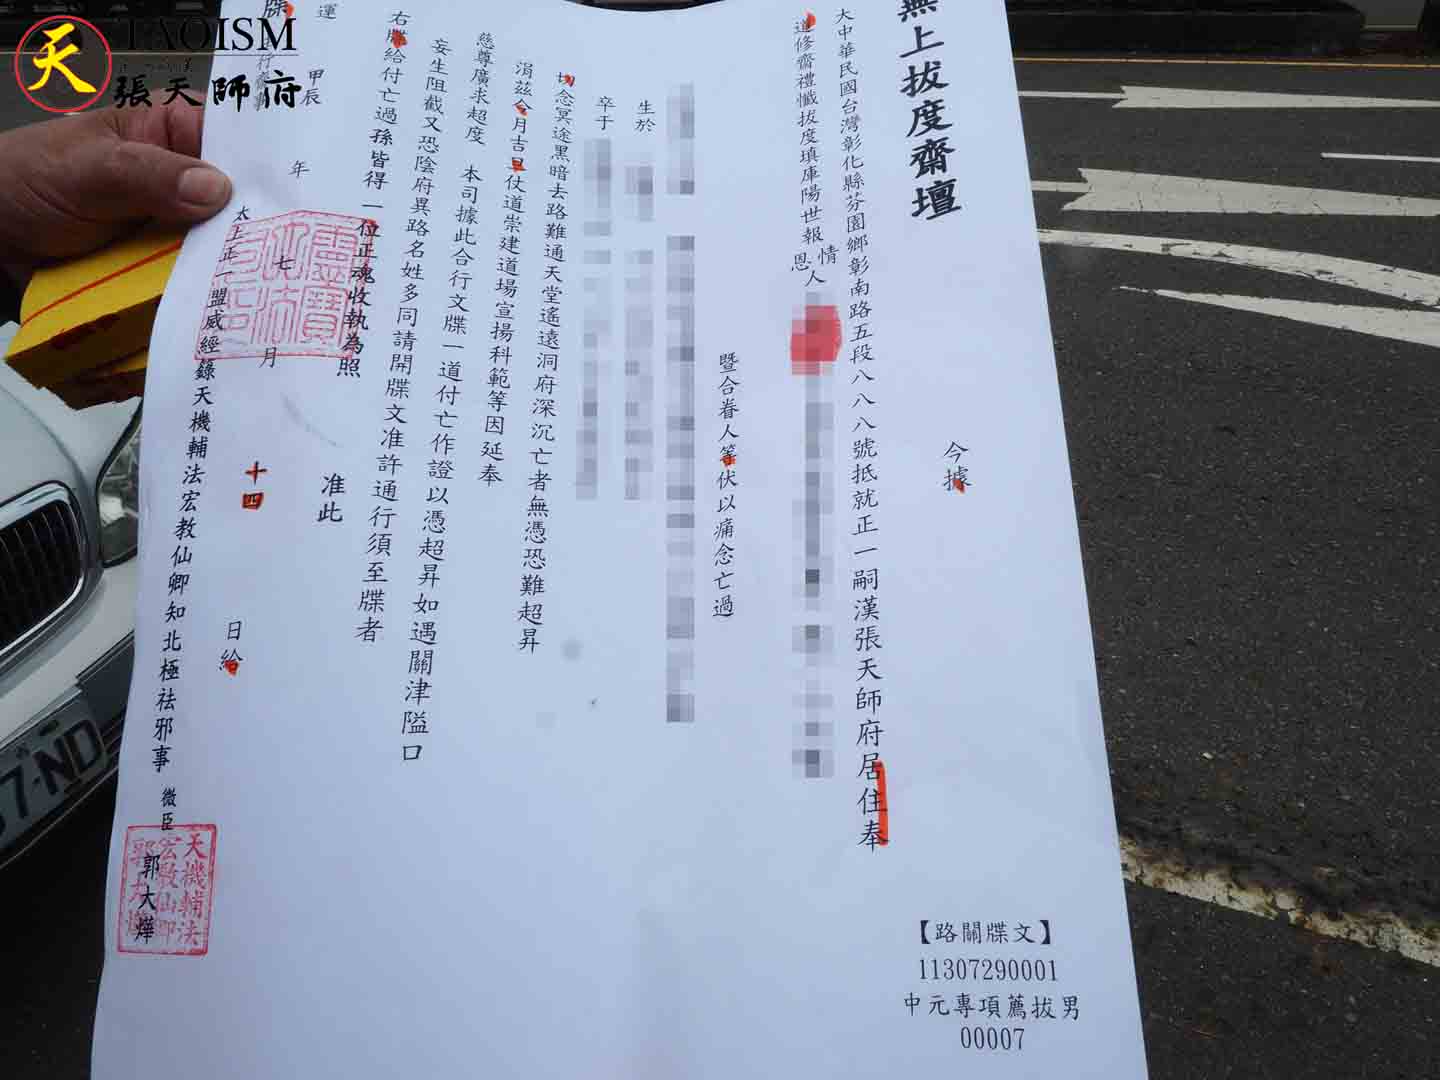 天
TAOISM
張天師府
無上拔度齋壇
今據
大中華民國台灣彰化縣芬園鄉彰南路五段八八八號抵就正一嗣漢張天師府居住奉
道修齋禮懺拔度填庫陽世報恩情人
暨合眷人等伏以痛念亡過
生於
卒于
切念冥途黑暗去路難通天堂遙遠洞府深沉亡者無憑恐難超昇
涓茲今月吉旦仗道崇建道場宣揚科範等因延奉
慈尊廣求超度 本司據此合行文牒一道付亡作證以憑超昇如遇關津隘口
妄生阻截又恐陰府異路名姓多同請開牒文准許通行須至牒者
右牒給付亡過孫皆得一位正魂收執為照
准此
運 甲辰 年 七 月 十四 日給
太上正一盟威經籙天機輔法宏教仙卿知北極祛邪事 微臣 郭大燁
天機輔法
宏教仙卿
郭大燁
【路關牒文】
11307290001
中元專項薦拔男
00007
7-ND